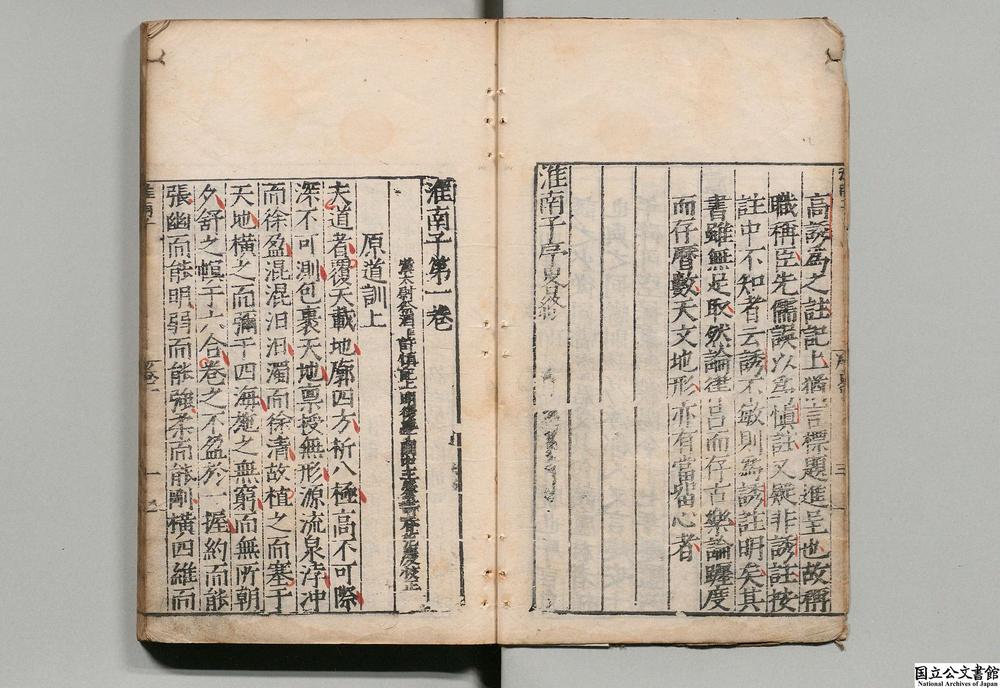 高誘為之註記上猶言標題進呈也故稱
職稱臣先儒誤以為慎註又疑非誘註按
註中不知者云誘不敏則為誘註明矣其
書雖無足取然論律呂而存古樂論躔度
而存曆數天文地形亦有當留心者
淮南子序畢
淮南子第一卷
漢太尉祭酒上許慎記上
原道訓上
夫道者覆天載地廓四方柝八極高不可際
深不可測包裹天地禀授無形源流泉浡冲
而徐盈混混汩汩濁而徐清故植之而塞于
天地橫之而彌于四海施之無窮而無所朝
夕舒之幎于六合卷之不盈於一握約而能
張幽而能明弱而能強柔而能剛橫四維而
国立公文書館
National Archives of Japan